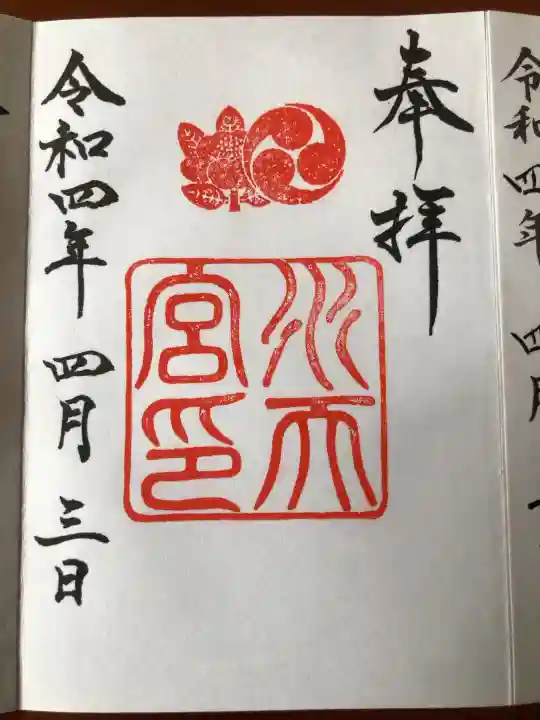 奉拝
水天
宮印
令和四年 四月 三日
令和四年 四月